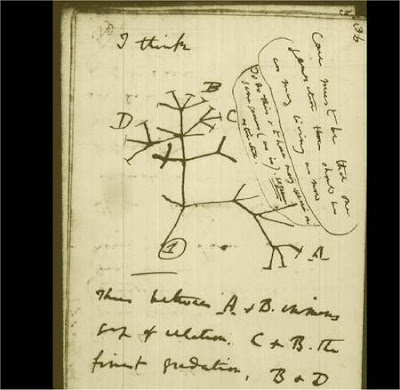 36
I think
Case must be that one
generation then should be
as many living as now
To do this & to have many species in
same genus (as is). requires
extinction.
B
D
C
1
A
Thus between A & B. immense
gap of relation. C & B. the
finest gradation, B & D